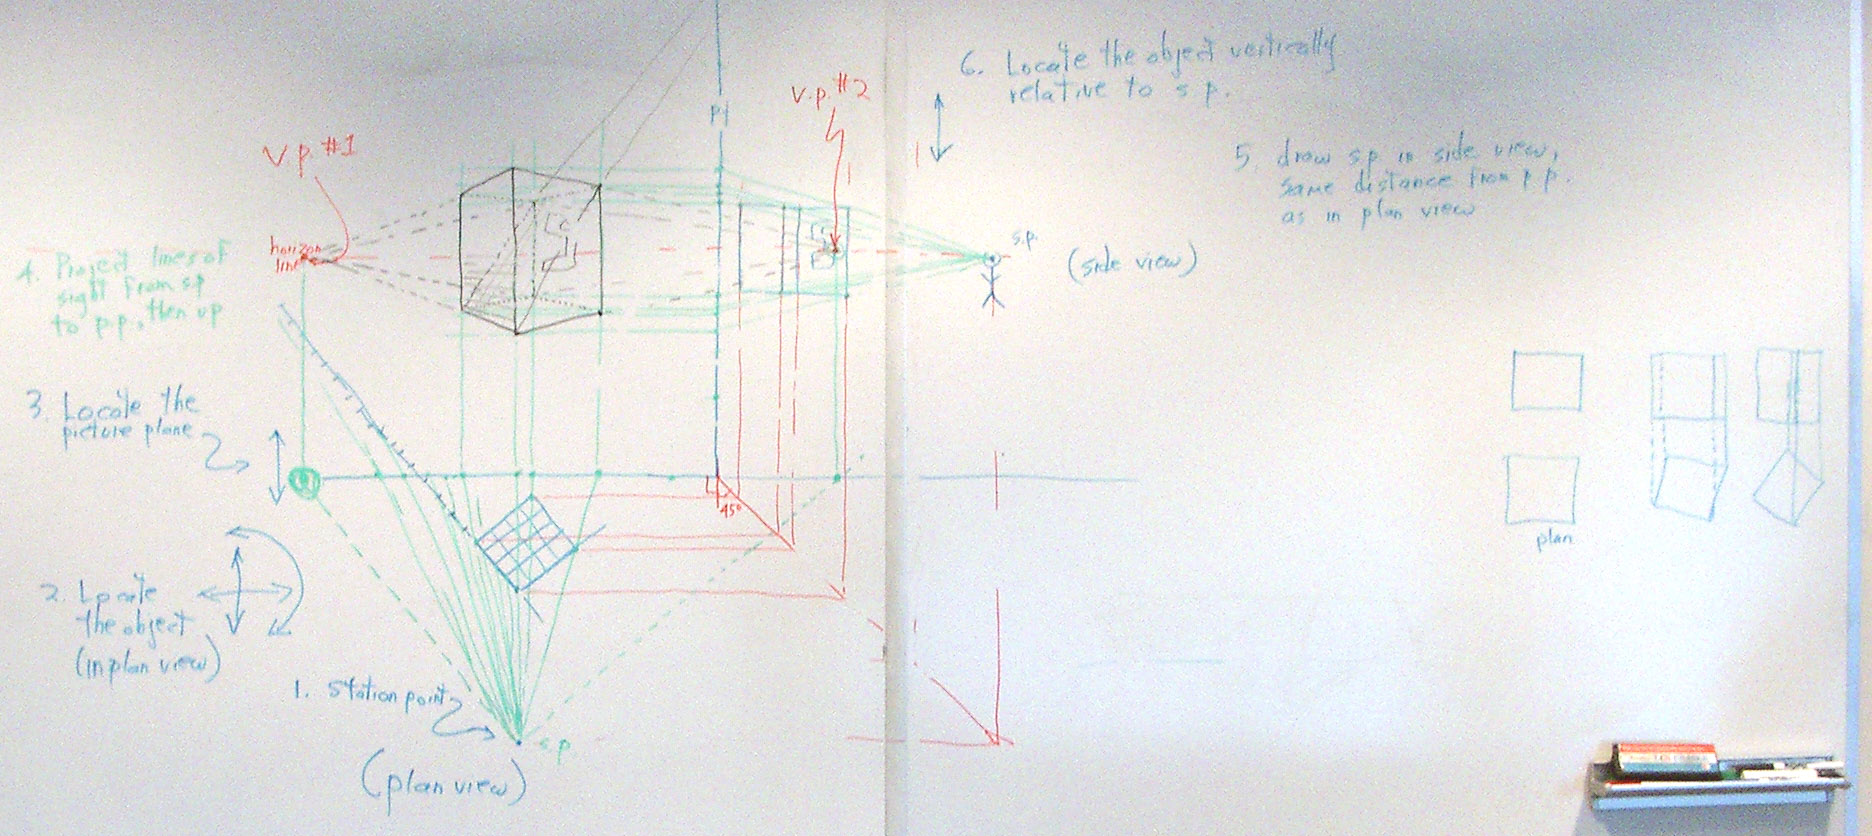 6. Locate the object vertically
relative to s.p.
V.P. #2
PP
V.P. #1
5. draw s.p. in side view,
same distance from p.p.
as in plan view
s.p.
(side view)
horizon
line
4. Project lines of
sight from s.p
to p.p., then up
3. Locate the
picture plane
45°
plan
2. Locate
the object
(in plan view)
1. Station point
s.p
(plan view)